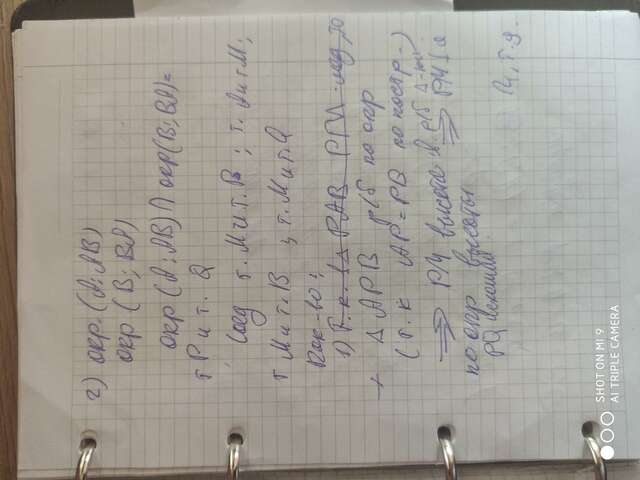 2) окр. (A; AB)
окр (B; BA)
окр (A; AB) ∩ окр (B; BA) =
т P и т. Q
Соед т. M и т. B ; т. A и т. M;
т M и т. B ; т. M и т. Q
Док-во:
1) Т. к. △ PAB
+ △ APB р/б по опр
(т. к AP = PB по постр -)
⇒ PM высота в р/б △-ке
по опр высоты ⇒ PM ⊥ a
PQ искомая
Ч. т. д.
SHOT ON MI 9
AI TRIPLE CAMERA